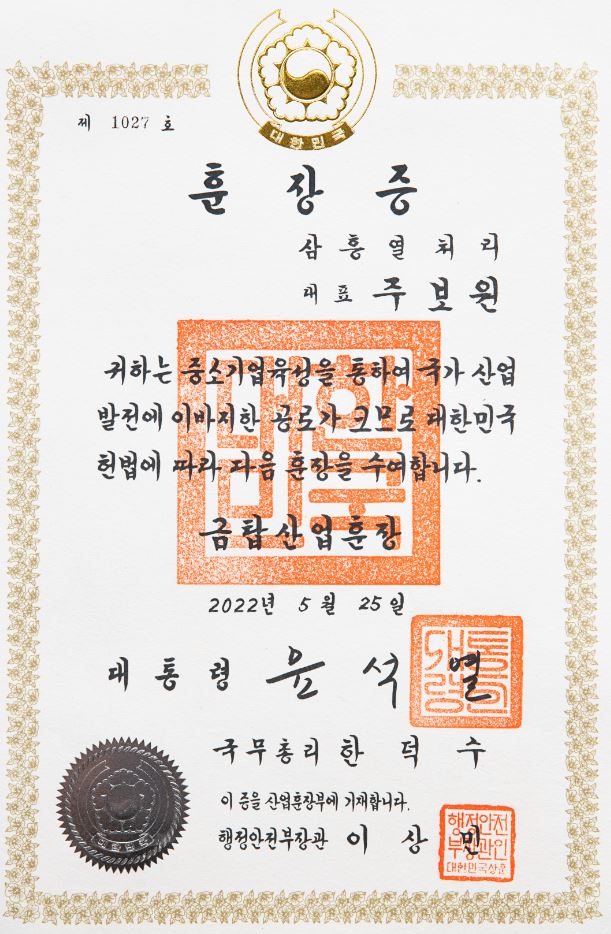 대한민국
제 1027 호
훈장증
삼흥열처리
대표 주보원
귀하는 중소기업육성을 통하여 국가 산업
발전에 이바지한 공로가 크므로 대한민국
헌법에 따라 다음 훈장을 수여합니다.
대한
민국
금탑산업훈장
2022년 5월 25일
대통령 윤석열
국무총리 한덕수
이 증을 산업훈장부에 기재합니다.
행정안전부장관 이상민
행정안전
부장관인
대한민국상훈